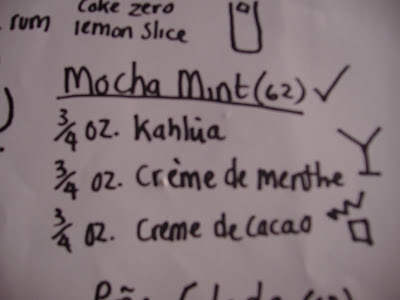 rum
Coke zero
lemon slice
Mocha Mint (62) ✓
3/4 oz. Kahlúa
3/4 oz. Crème de menthe
3/4 oz. Creme de Cacao